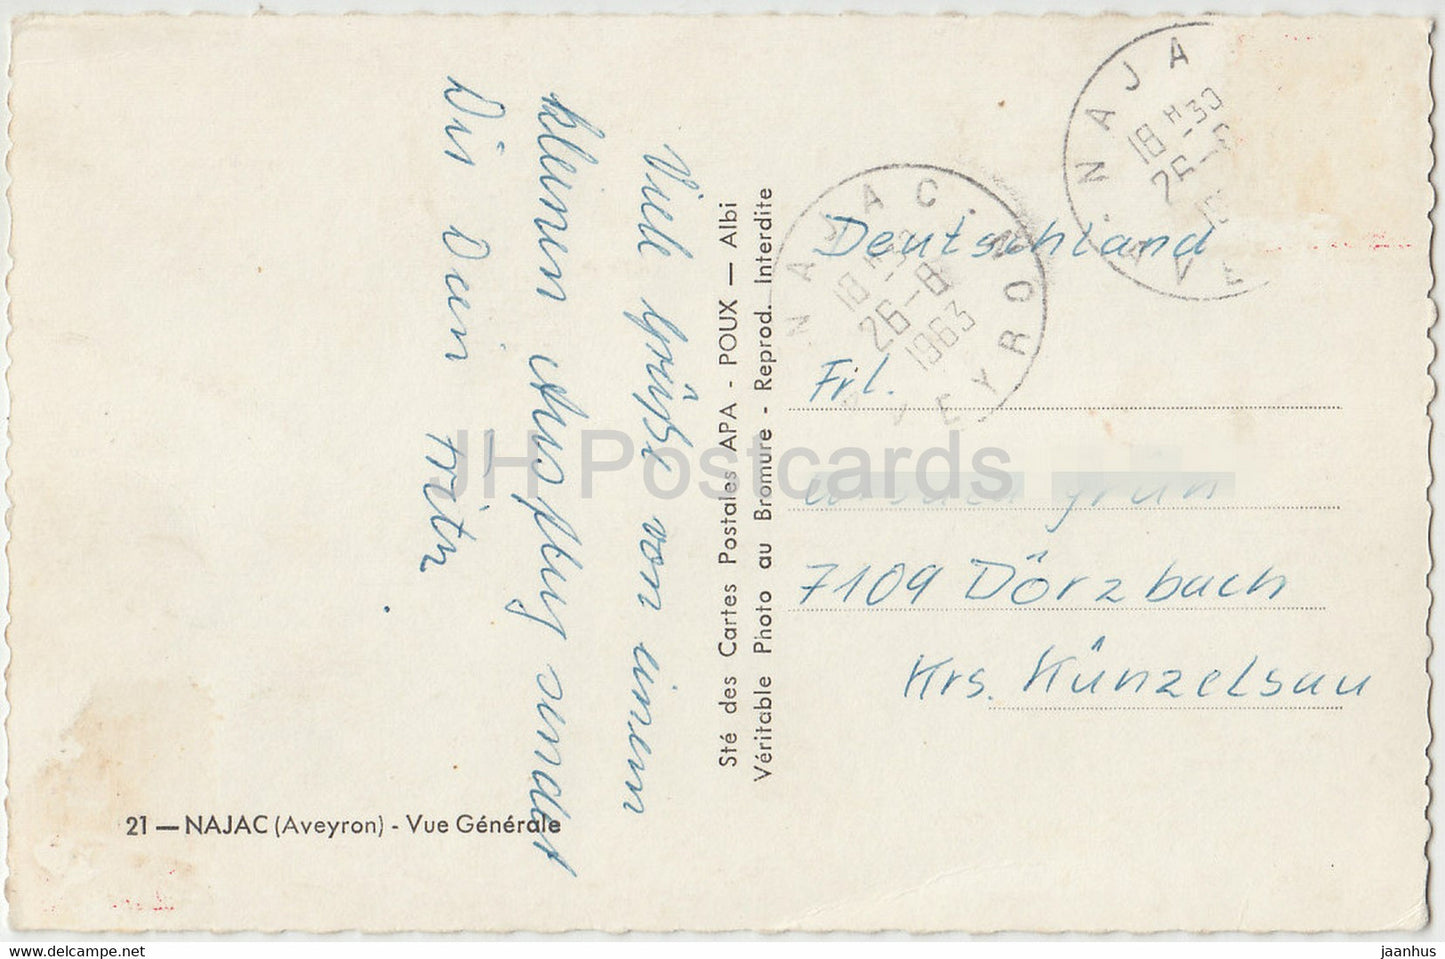 Viele Grüße von einem
kleinen Ausflug sendet
Dir Dein Fritz
Sté des Cartes Postales APA - POUX — Albi
Véritable Photo au Bromure - Reprod. Interdite
NAJAC
18 H 30
26-8
1963
AVEYRON
NAJA
18 H 30
26-8
AVE
Deutschland
Frl.
grün
7109 Dörzbach
Krs. Künzelsau
21 — NAJAC (Aveyron) - Vue Générale
JH Postcards
www.delcampe.net
jaanhus